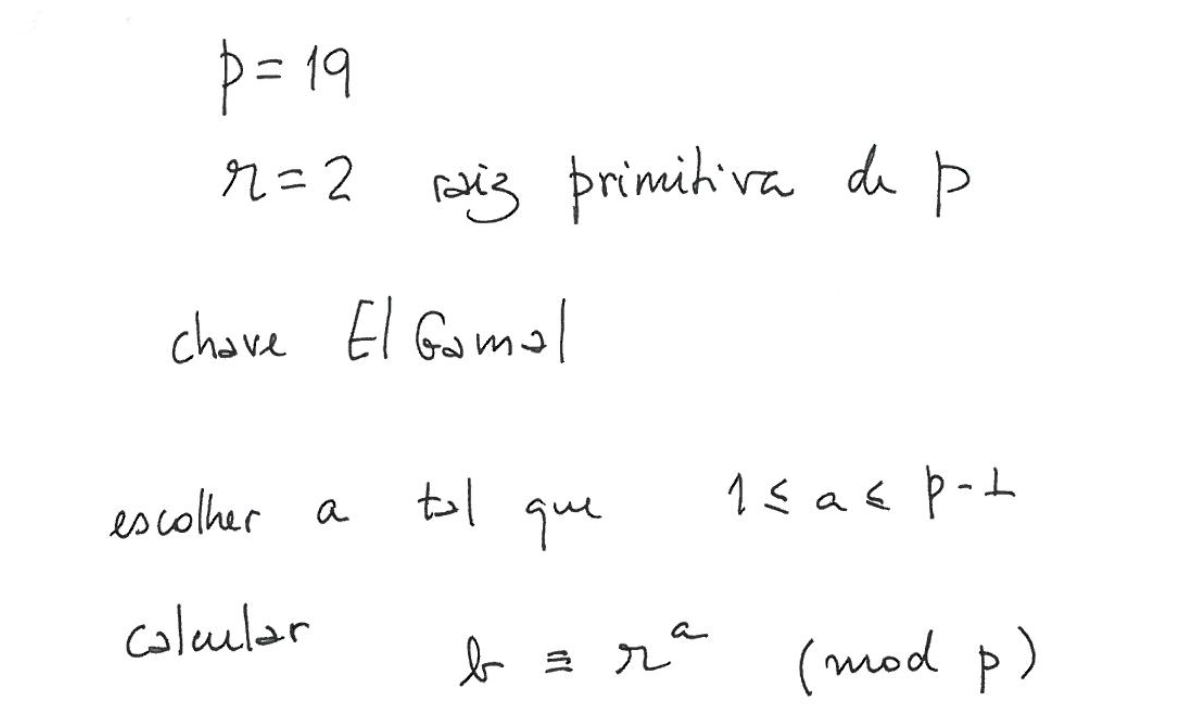 p = 19
r = 2 raiz primitiva de p
chave El Gamal
escolher a tal que 1 ≤ a ≤ p-1
calcular b ≡ r^a (mod p)